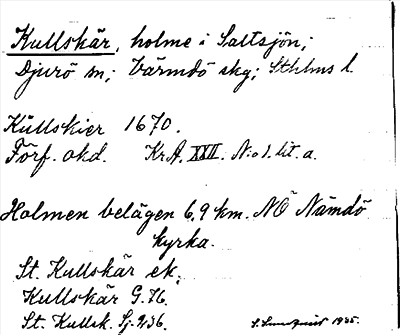 Kullskär, holme i Saltsjön;
Djurö sn; Värmdö skg; Sthlms l.
Kullskier 1670.
Förf. okd. KrA. XXII. N:o 1. lit. a.
Holmen belägen 6,9 km. NÖ Nämdö
kyrka.
St. Kullskär ek.
Kullskär G.76.
St. Kullsk. Sj. 936.
1935.